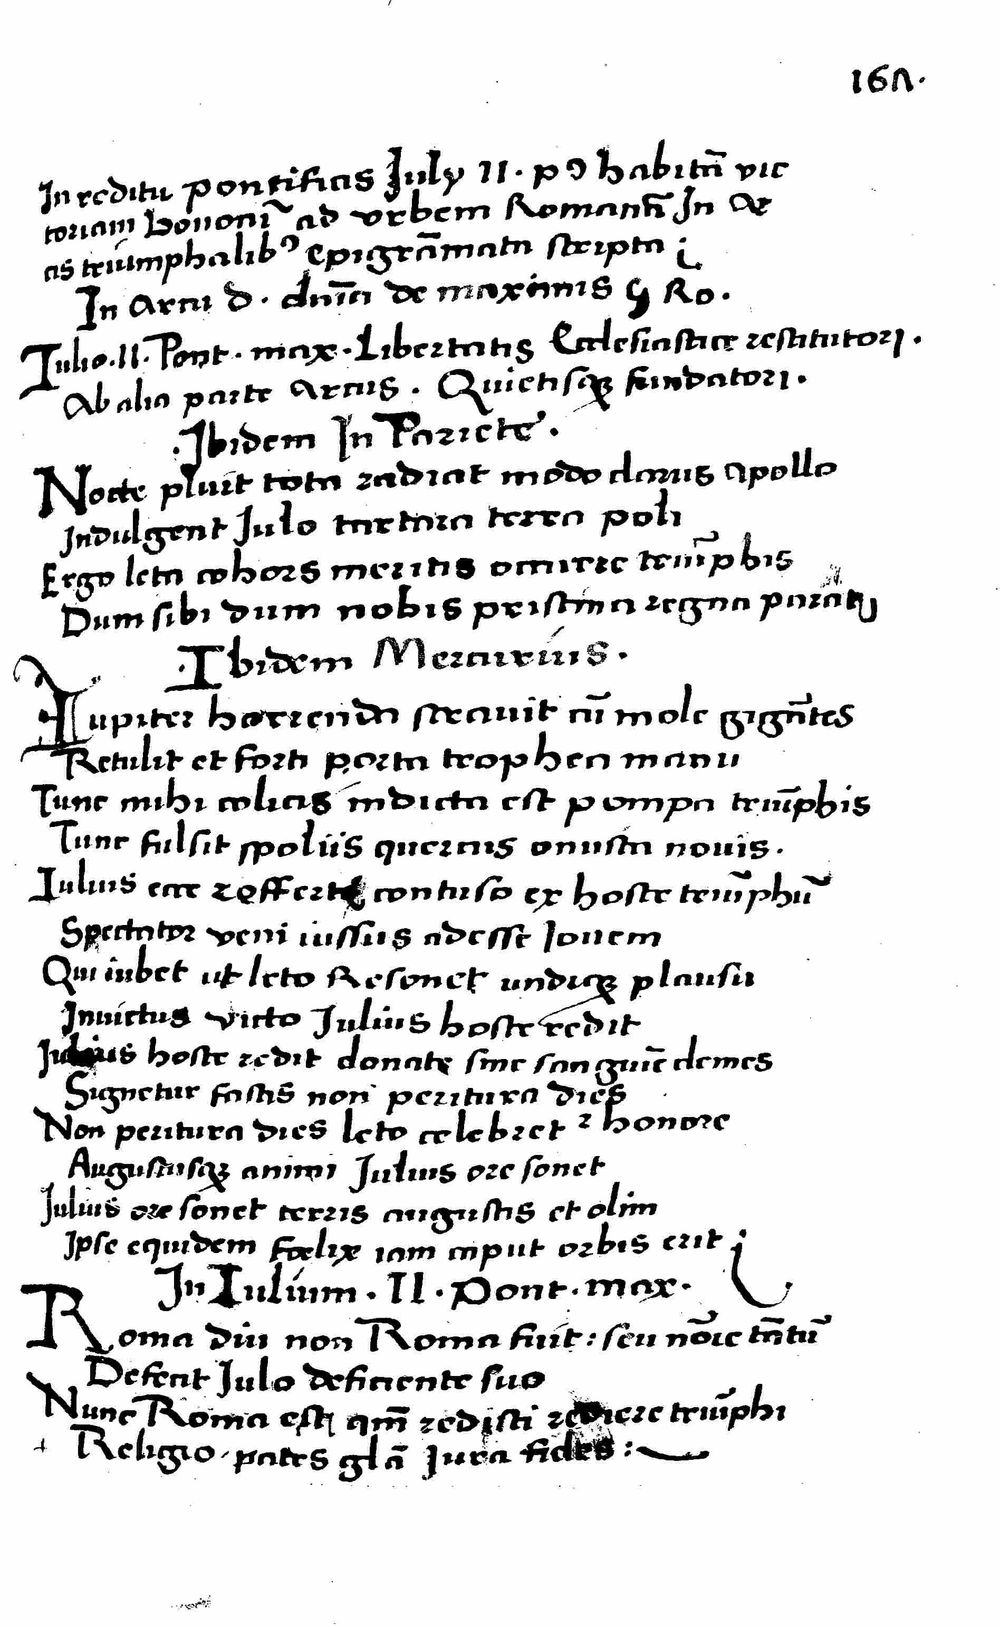 167.
In reditu pontificis July II. pꝰ habitā vic
toriam bononiē ad vrbem Romanā In Ar
as triumphalibꝰ epigrāmata scripta
In Arcu d. dnici de maximis ꝯ Ro.
Iulio. II. Pont. max. Libertatis Ecclesiasticę restitutori.
Ab alia parte Arcus. Quietisqꝫ fundatori.
.Ibidem In Pariete.
Nocte pluit tota radiat modo clarus apollo
Indulgent Julo tartara terra poli
Ergo leta cohors meritis occurre triūphis
Dum sibi dum nobis pristina regna parat
.Ibidem Mercurius.
Iupiter horrenda stravit cū mole gigātes
Retulit et forti porta trophea manu
Tunc mihi colicis indicta est pompa triūphis
Tunc fulsit spoliis quercus onusta novis.
Iulius ecce reffert contuso ex hoste triūphū
Spectator veni iussus adesse Iouem
Qui iubet ut leto Resonet undiqꝫ plausu
Invictus victo Julius hoste redit
Julius hoste redit donate sine sanguīe demes
Signetur fastis non peritura dies
Non peritura dies leto celebret ꝛ honore
Augustusqꝫ animi Julius ore sonet
Julius ore sonet terris augustis et olim
Ipse equidem fœlix iam caput orbis erit
In Iulium. II. Pont. max.
Roma diu non Roma fuit: seu nōīe tātū
Defecit Julo deficiente suo
Nunc Roma est qm̄ redisti rediere triūphi
Religio. pates glā Jura fides: